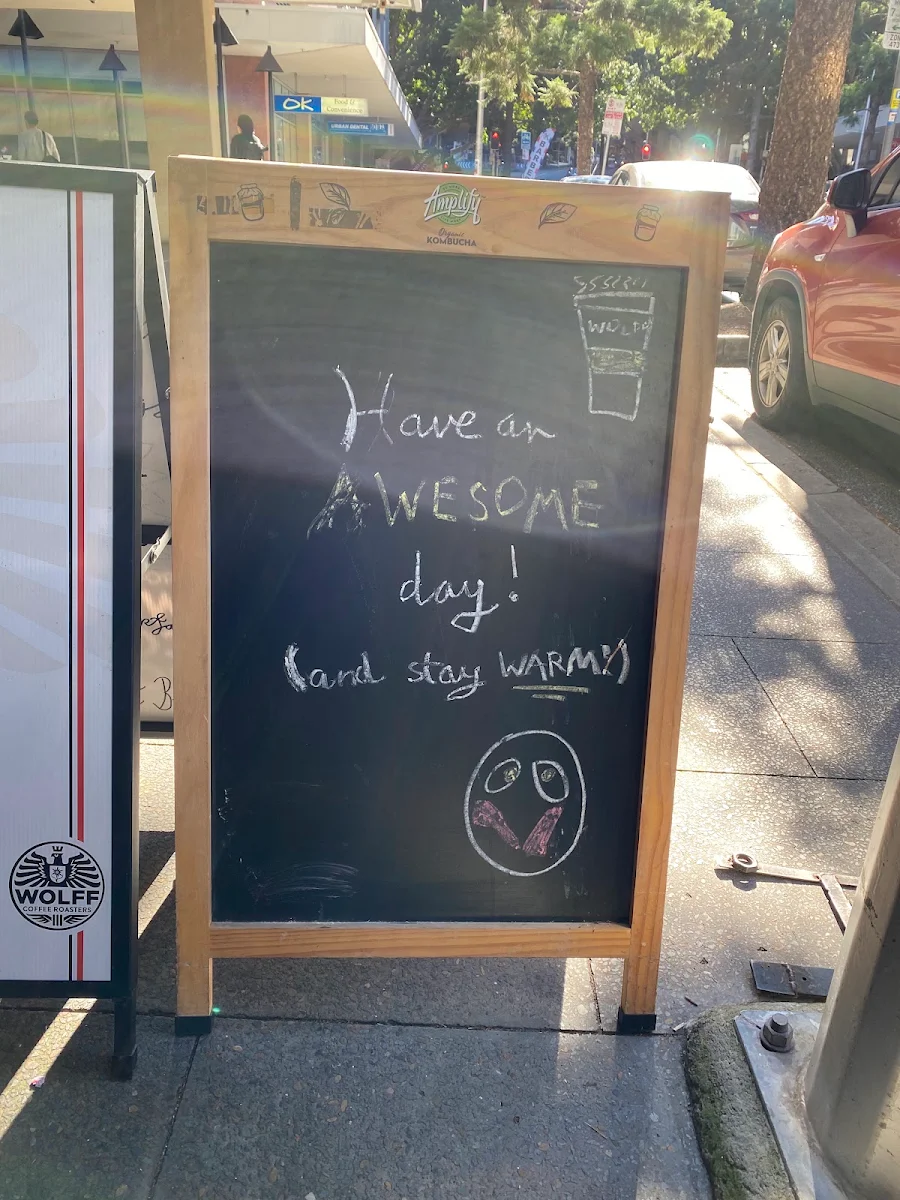 OK
Food & Convenience
URBAN DENTAL
BARBE
Amplify
Organic
KOMBUCHA
WOLFF
Have an
AWESOME
day!
(and stay WARM!)
WOLFF
COFFEE ROASTERS